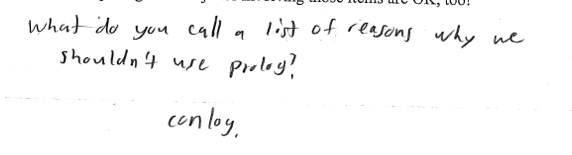 these items are OK, too!
What do you call a list of reasons why we
shouldn't use prolog?
conlog.